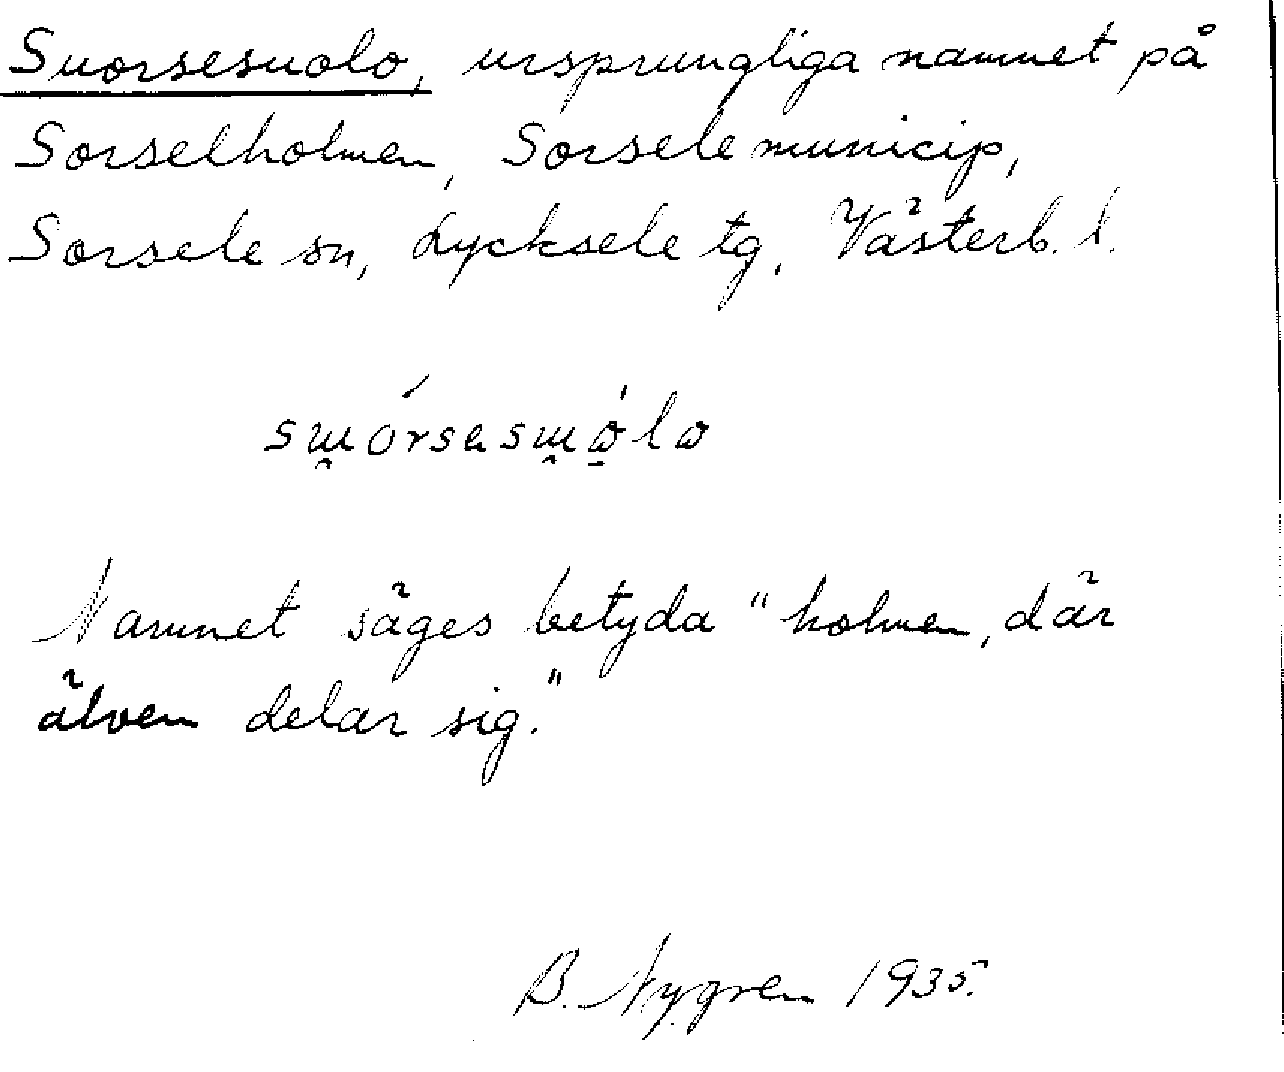 Suorsesuolo, ursprungliga namnet på
Sorselholmen, Sorsele municip,
Sorsele sn, Lycksele tg, Västerb. l.
sɯ̯órsasɯ̯ó̠lo
Namnet säges betyda "holmen, där
älven delar sig."
B. Nygren 1935.